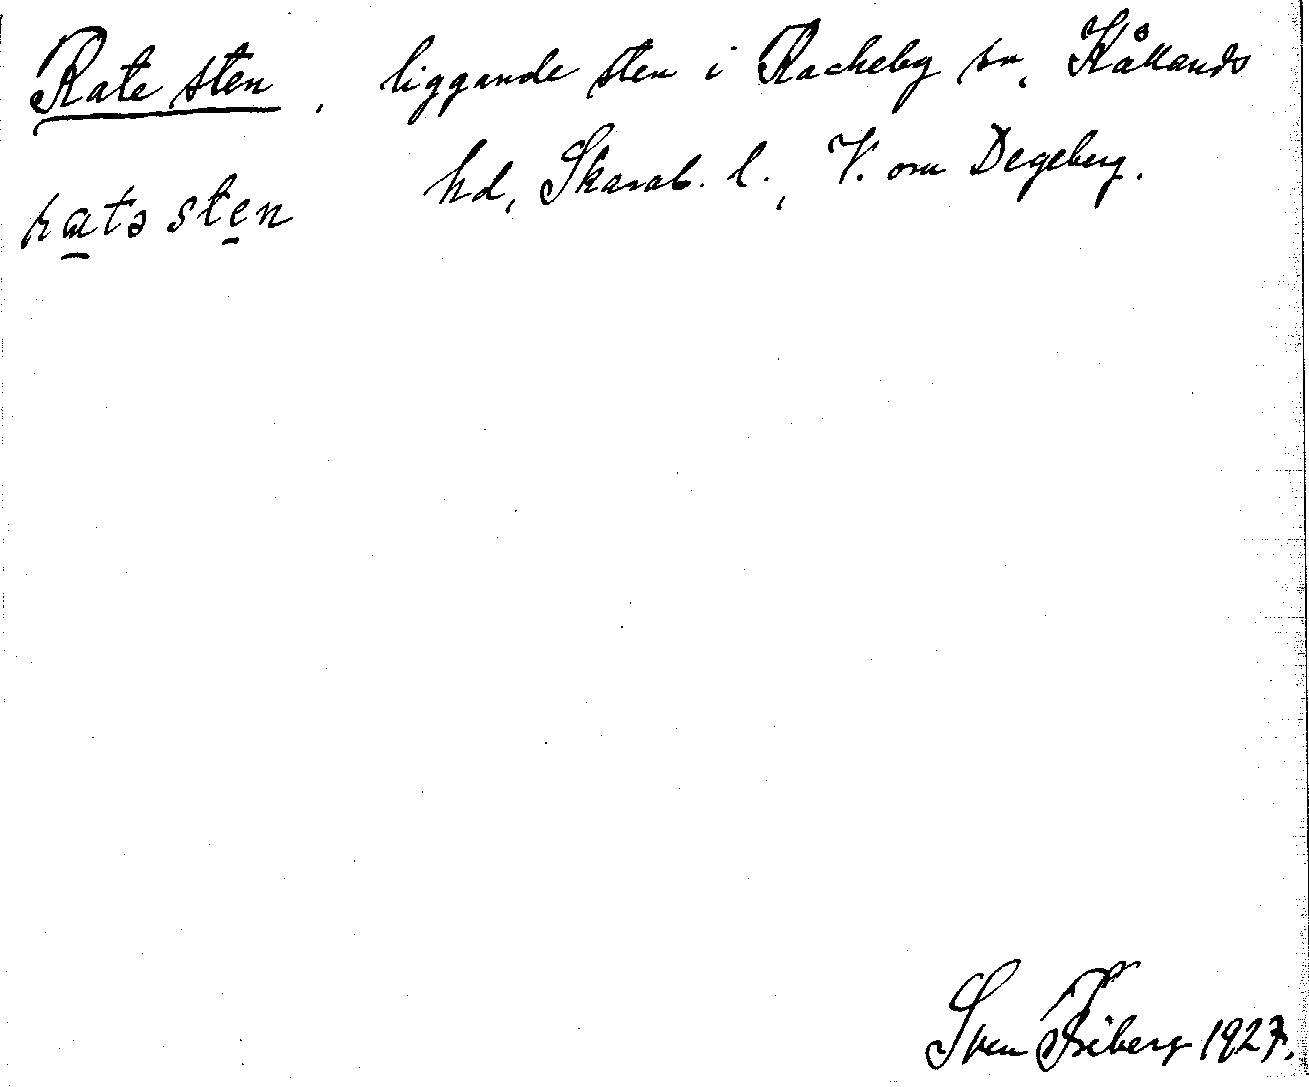 Rate sten, liggande sten i Rackeby sn, Kållands
hd, Skarab. l., V. om Degeberg.
ratə sten
Sven Friberg 1927.